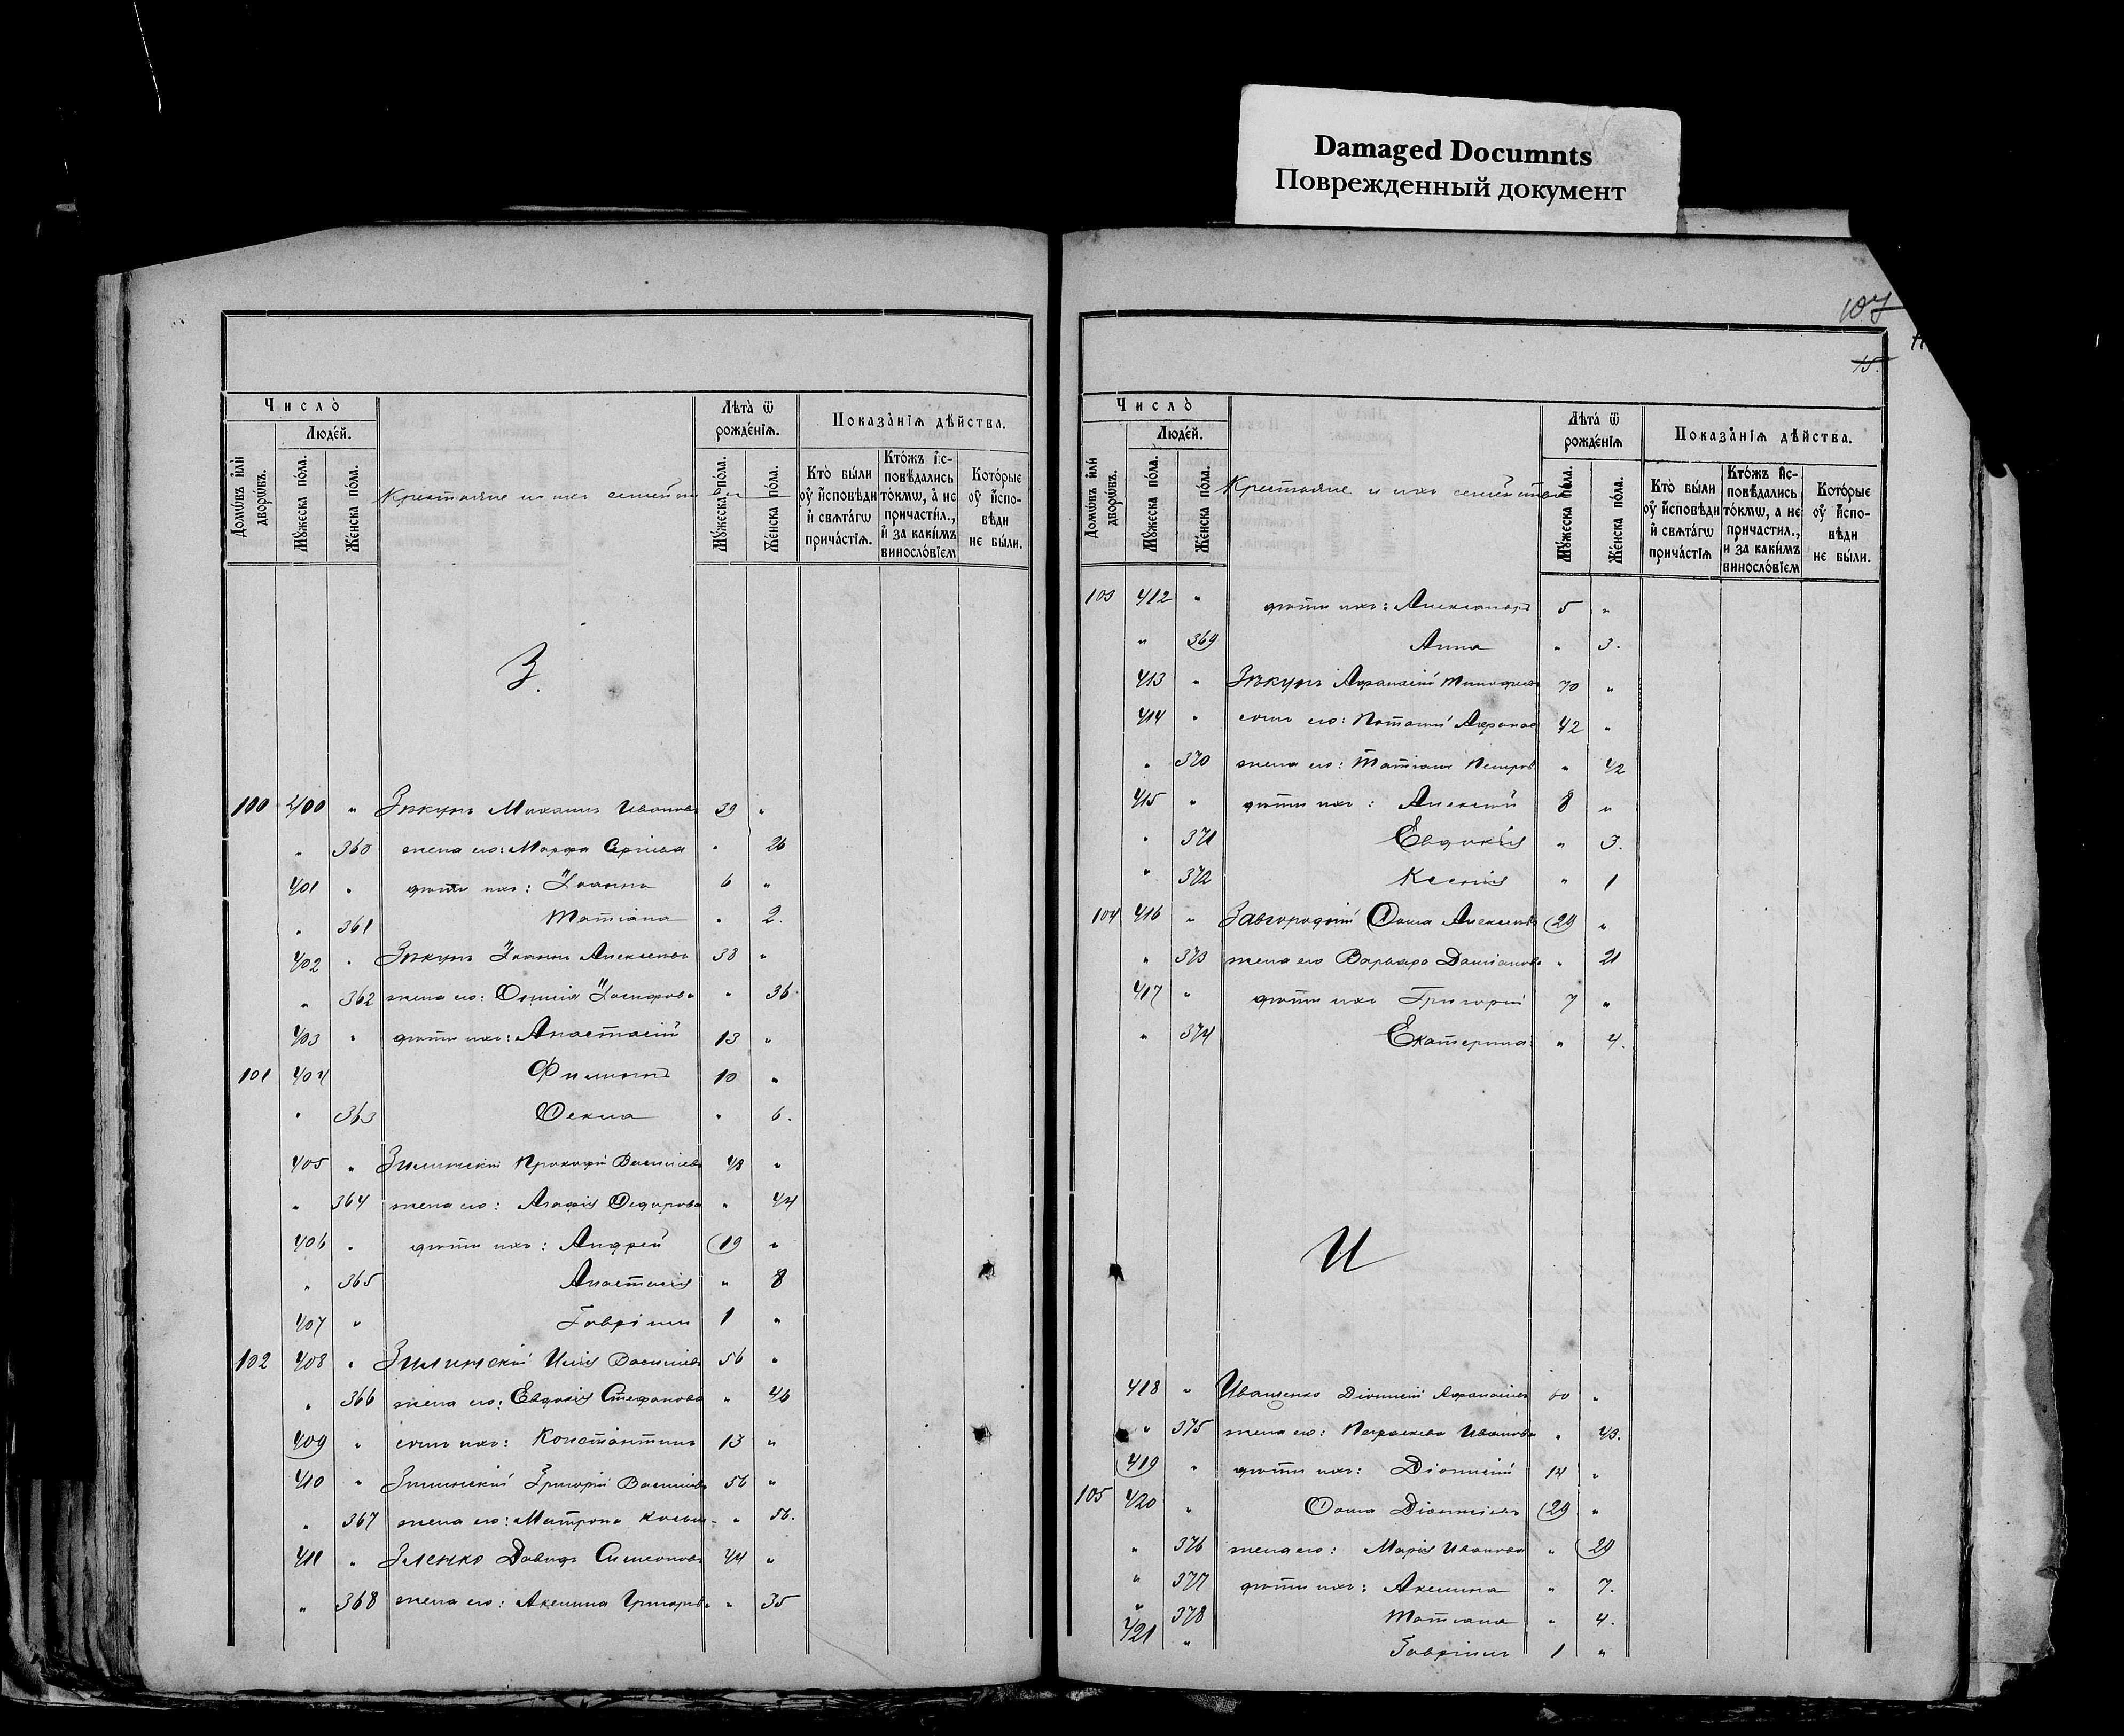 Damaged Documnts
Поврежденный документ
Число̀
Люде́й.
Домѡ́въ и҆лѝ дворѡ́въ.
Мꙋ́жеска по́ла.
Же́нска по́ла.
Крестьяне и ихъ семейства
Лѣта̀ ѿ рожде́нїѧ.
Мꙋ́жеска по́ла.
Же́нска по́ла.
Показа̑нїѧ дѣ́йства.
Кто̀ бы́ли ᲂу҆ и҆́сповѣди и҆ свѧта́гѡ прича́стїѧ.
Кто́жъ и҆с-повѣ́дались то́кмѡ, а҆ не причасти́л., и҆ за каки́мъ виносло́вїем
Кото́рые ᲂу҆ и҆́спо-вѣди не бы́ли.
З.
100 400 " Зѣкунъ Михаилъ Ивановъ 39 "
" 360 жена его: Марфа " 26
401 " дѣти ихъ: Іоаннъ 6 "
" 361 Татіана " 2.
402 " Зѣкунъ Іоаннъ Алексѣевъ 38 "
" 362 жена его: Іосифова " 36
403 " дѣти ихъ: Анастасій 13 "
101 404 Филиппъ 10 "
" 363 Ѳекла " 6.
405 " Зилинскій Прокофій Васильевъ 48 "
" 364 жена его: Агафія Ѳедорова " 44
406 " дѣти ихъ: Андрей 19 "
" 365 Анастасія " 8
407 " Гавріилъ 1 "
102 408 " Зилинскій Илія Васильевъ 56 "
" 366 жена его: Евдокія Стефанова " 46
409 " сынъ ихъ: Константинъ 13 "
410 " Зилинскій Григорій Васильевъ 56 "
" 367 жена его: Матрона " 56.
411 " Зленко Давидъ Симеоновъ 44 "
" 368 жена его: Акилина Григорьева " 35
107
15.
Число̀
Люде́й.
Домѡ́въ и҆лѝ дворѡ́въ.
Мꙋ́жеска по́ла.
Же́нска по́ла.
Крестьяне и ихъ семейства
Лѣта̀ ѿ рожде́нїѧ
Мꙋ́жеска по́ла.
Же́нска по́ла.
Показа̑нїѧ дѣ́йства.
Кто̀ бы́ли ᲂу҆ и҆́сповѣди и҆ свѧта́гѡ прича́стїѧ
Кто́жъ и҆с-повѣ́дались то́кмѡ, а не причастил., и за каки́мъ виносло́вїем
Кото́рые ᲂу҆ и҆́спо-вѣди не бы́ли.
103 412 " дѣти ихъ: Александръ 5 "
" 369 Анна " 3.
413 " Зѣкунъ Афанасій Тимофеевъ 70 "
414 " сынъ его: Потапій Афанасьевъ 42 "
" 370 жена его: Татіана Петрова " 42
415 " дѣти ихъ: Алексѣй 8 "
" 371 Евдокія " 3.
" 372 Ксенія " 1
104 416 " Завгородній Ѳома Алексѣевъ 29 "
" 373 жена его Варвара Даміанова " 21
417 " дѣти ихъ Григорій 7 "
" 374 Екатерина " 4.
И
418 " Иващенко Діонисій Афанасіевъ 60 "
" 375 жена его: Параскева Иванова " 43.
419 " дѣти ихъ: Діонисій 14 "
105 420 " Ѳома Діонисіевъ 29 "
" 376 жена его: Марія Иванова " 29
" 377 дѣти ихъ: Акилина " 7.
" 378 Татіана " 4.
421 " Гавріилъ 1 "